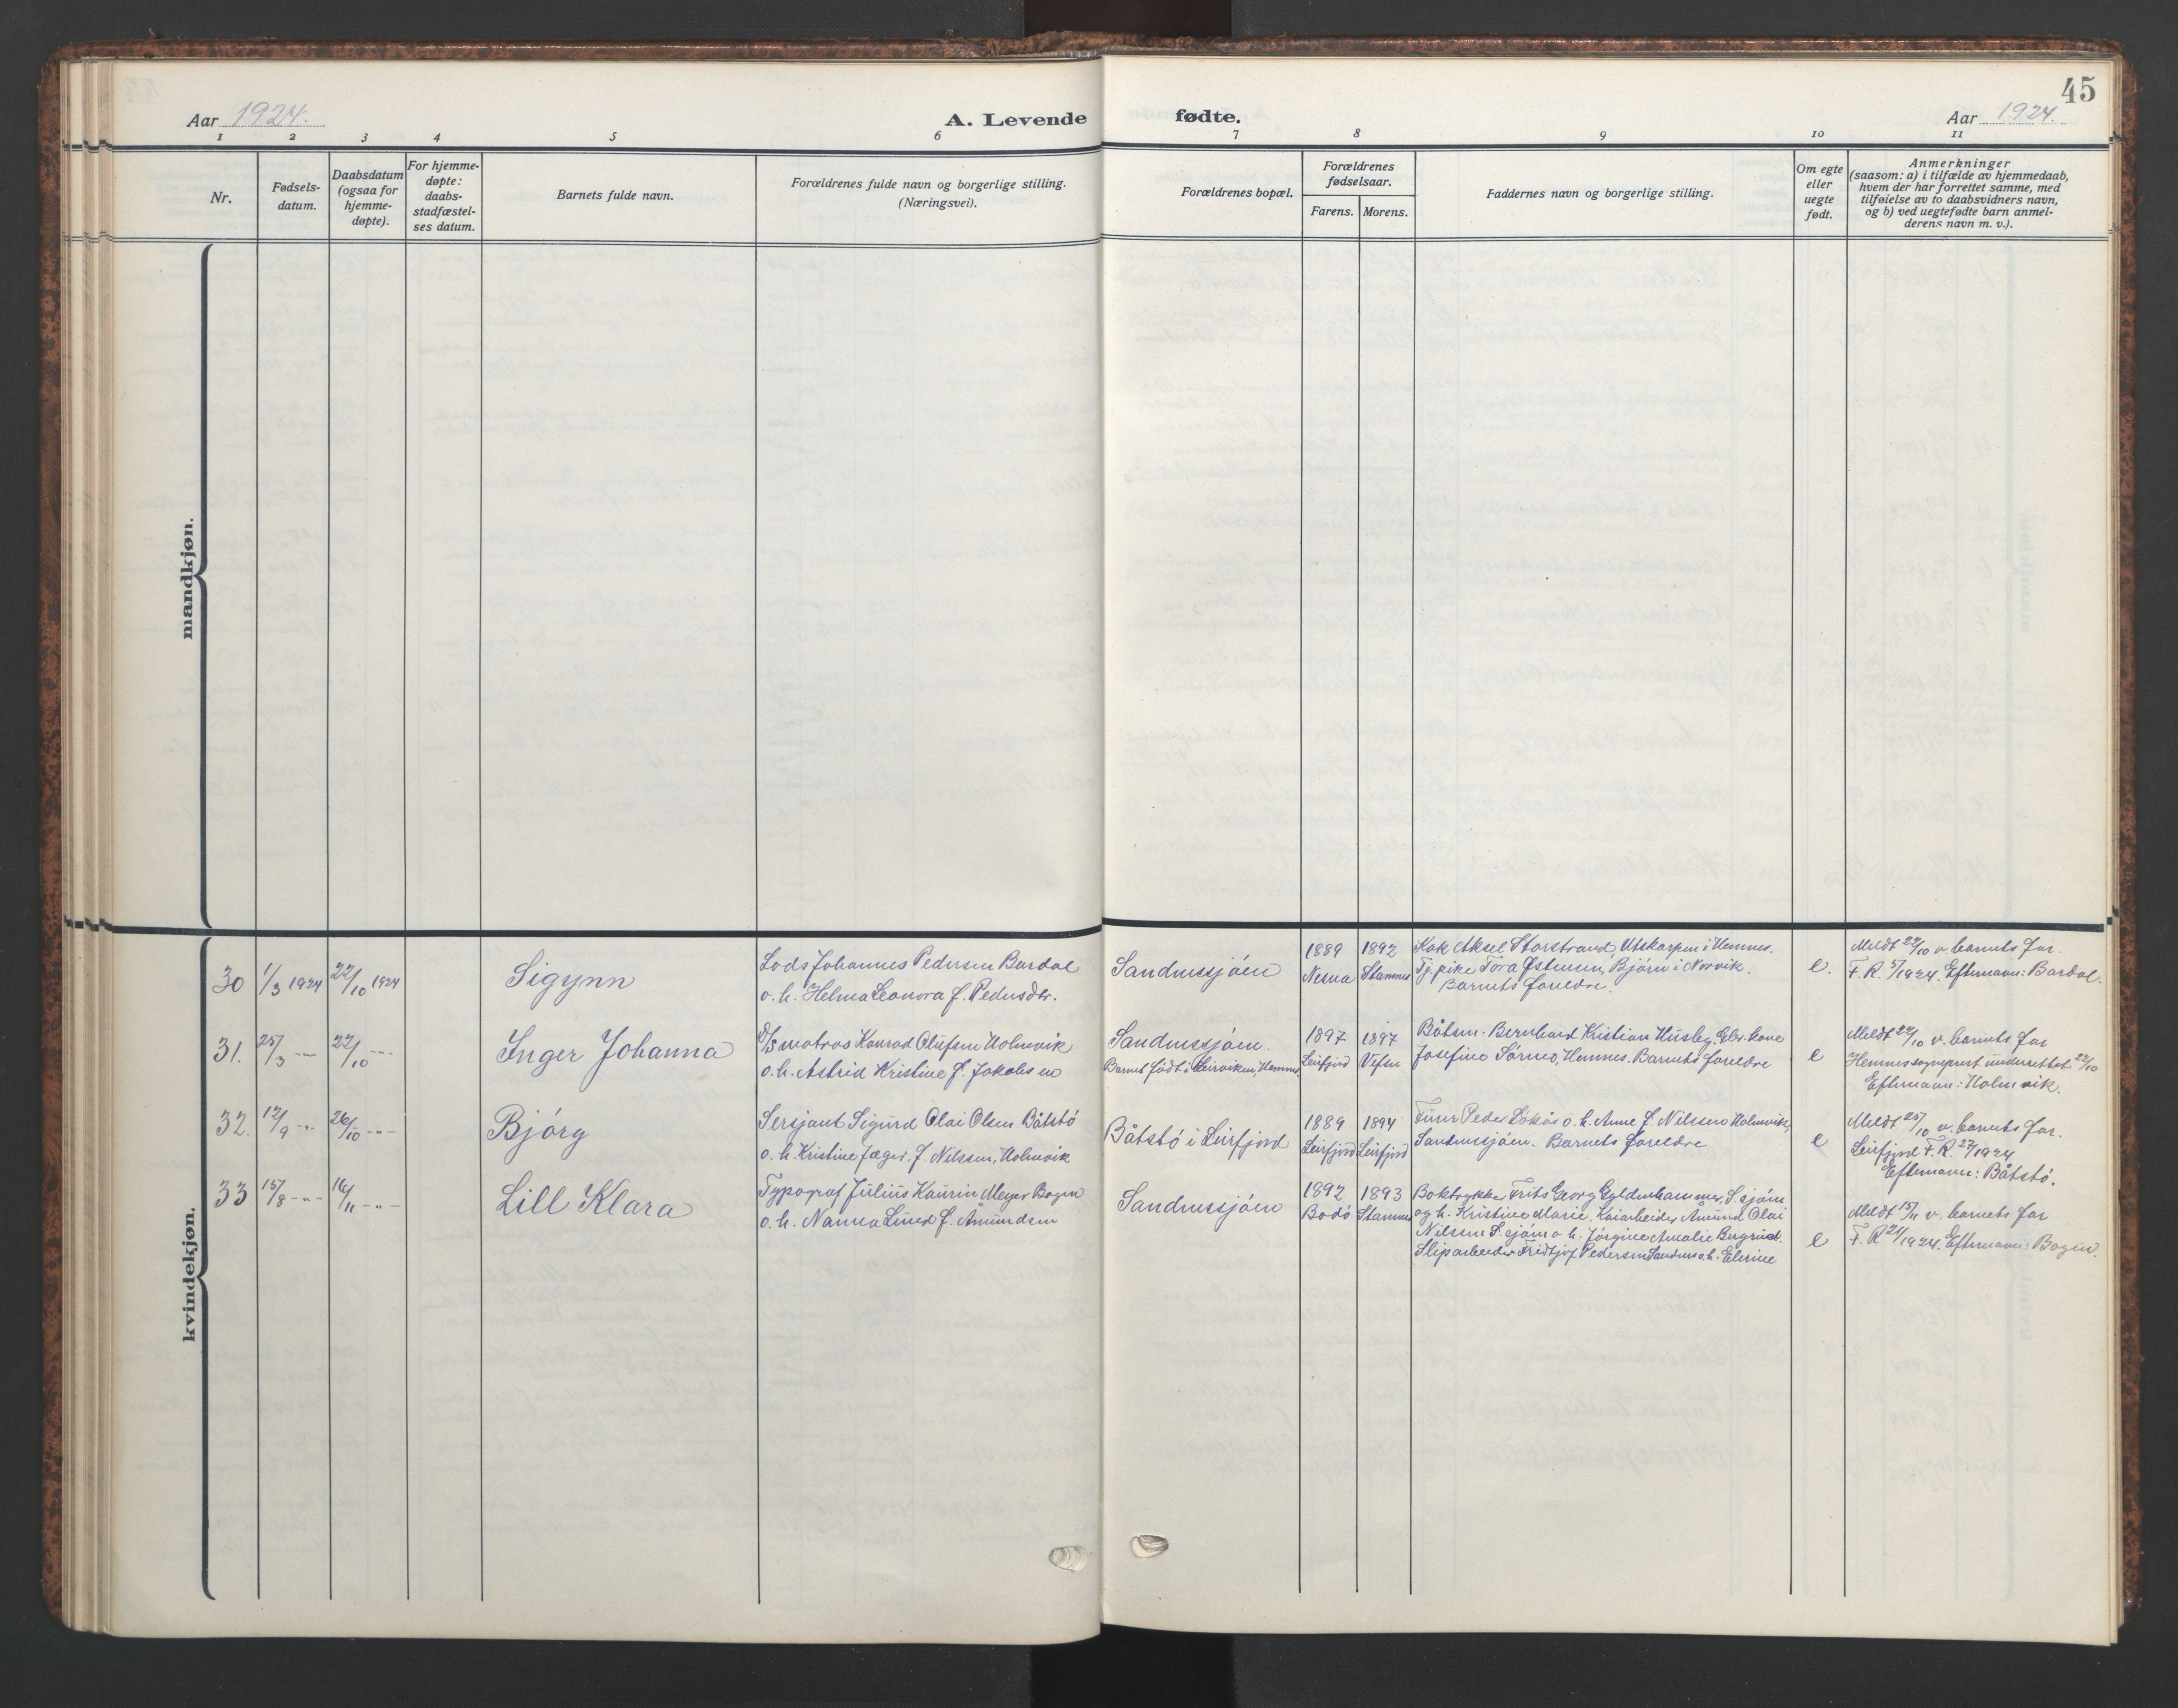 45
Aar 1924.
A. Levende fødte.
Aar 1924.
1 2 3 4 5 6 7 8 9 10 11
Nr.
Fødsels-
datum.
Daabsdatum
(ogsaa for
hjemme-
døpte).
For hjemme-
døpte:
daabs-
stadfæstel-
ses datum.
Barnets fulde navn.
Forældrenes fulde navn og borgerlige stilling.
(Næringsvei).
Forældrenes bopæl.
Forældrenes
fødselsaar.
Farens. Morens.
Faddernes navn og borgerlige stilling.
Om egte
eller
uegte
født.
Anmerkninger
(saasom: a) i tilfælde av hjemmedaab,
hvem der har forrettet samme, med
tilføielse av to daabsvidners navn,
og b) ved uegtefødte barn anmel-
derens navn m. v.).
mandkjøn.
kvindekjøn.
30 1/3 1924 22/10 1924
Sigynn
Lods Johannes Pedersen Bardal
o. h. Helma Leonora f. Pedersdtr.
Sandnessjøen
1889 1892
Nesna Stamnes
Kok Aksel Storstrand, Utskarpen i Hemnes.
Tj. pike Tora Østensen, Bjørn i Norvik.
Barnets foreldre.
e.
Meldt 22/10 v. barnets far.
F. R. 5/1924. Efternavn: Bardal.
31. 25/3 -"- 22/10 -"-
Inger Johanna
D/S matros Konrad Olufsen Holmvik
o. h. Astrid Kristine f. Jakobsen
Sandnessjøen.
Barnet født i Leirviken, Hemnes.
1897 1897
Leirfjord Vefsn
Båtsm. Bernhard Kristian Husby, Gbr. kone
Josefine Sørmo, Hemnes. Barnets foreldre
e
Meldt 22/10 v. barnets far
Hemnes sogneprest underrettet 22/10
Efternavn: Holmvik.
32. 12/9 -"- 26/10 -"-
Bjørg
Sersjant Sigurd Olai Olsen Båtstø
o. h. Kristine Jæger, f. Nilssen, Holmvik
Båtstø i Leirfjord
1889 1894
Leirfjord Leirfjord
Peder Løkås o. h. Anne f. Nilssen Holmvik,
Sandnessjøen. Barnets foreldre
e
Meldt 25/10 v. barnets far.
Leirfjord F. R. 27/1924
Efternavn: Båtstø.
33 15/8 -"- 16/11 -"-
Lill Klara
Typograf Julius Kaurin Meyer Bogen
o. h. Nanna Lined f. Åmundsen
Sandnessjøen
1892 1893
Bodø Stamnes
Boktrykker Frits Georg Gyldenhammer, S.sjøen
og h. Kristine Marie. Kaiarbeider Åmund Olai
Nilssen S.sjøen o. h. Jørgine Amalie Bergrud.
Sliparbeider Fridtjof Pedersen Sandnes o. h. Elerine
e
Meldt 15/11 v. barnets far
F. R 24/1924. Efternavn: Bogen.